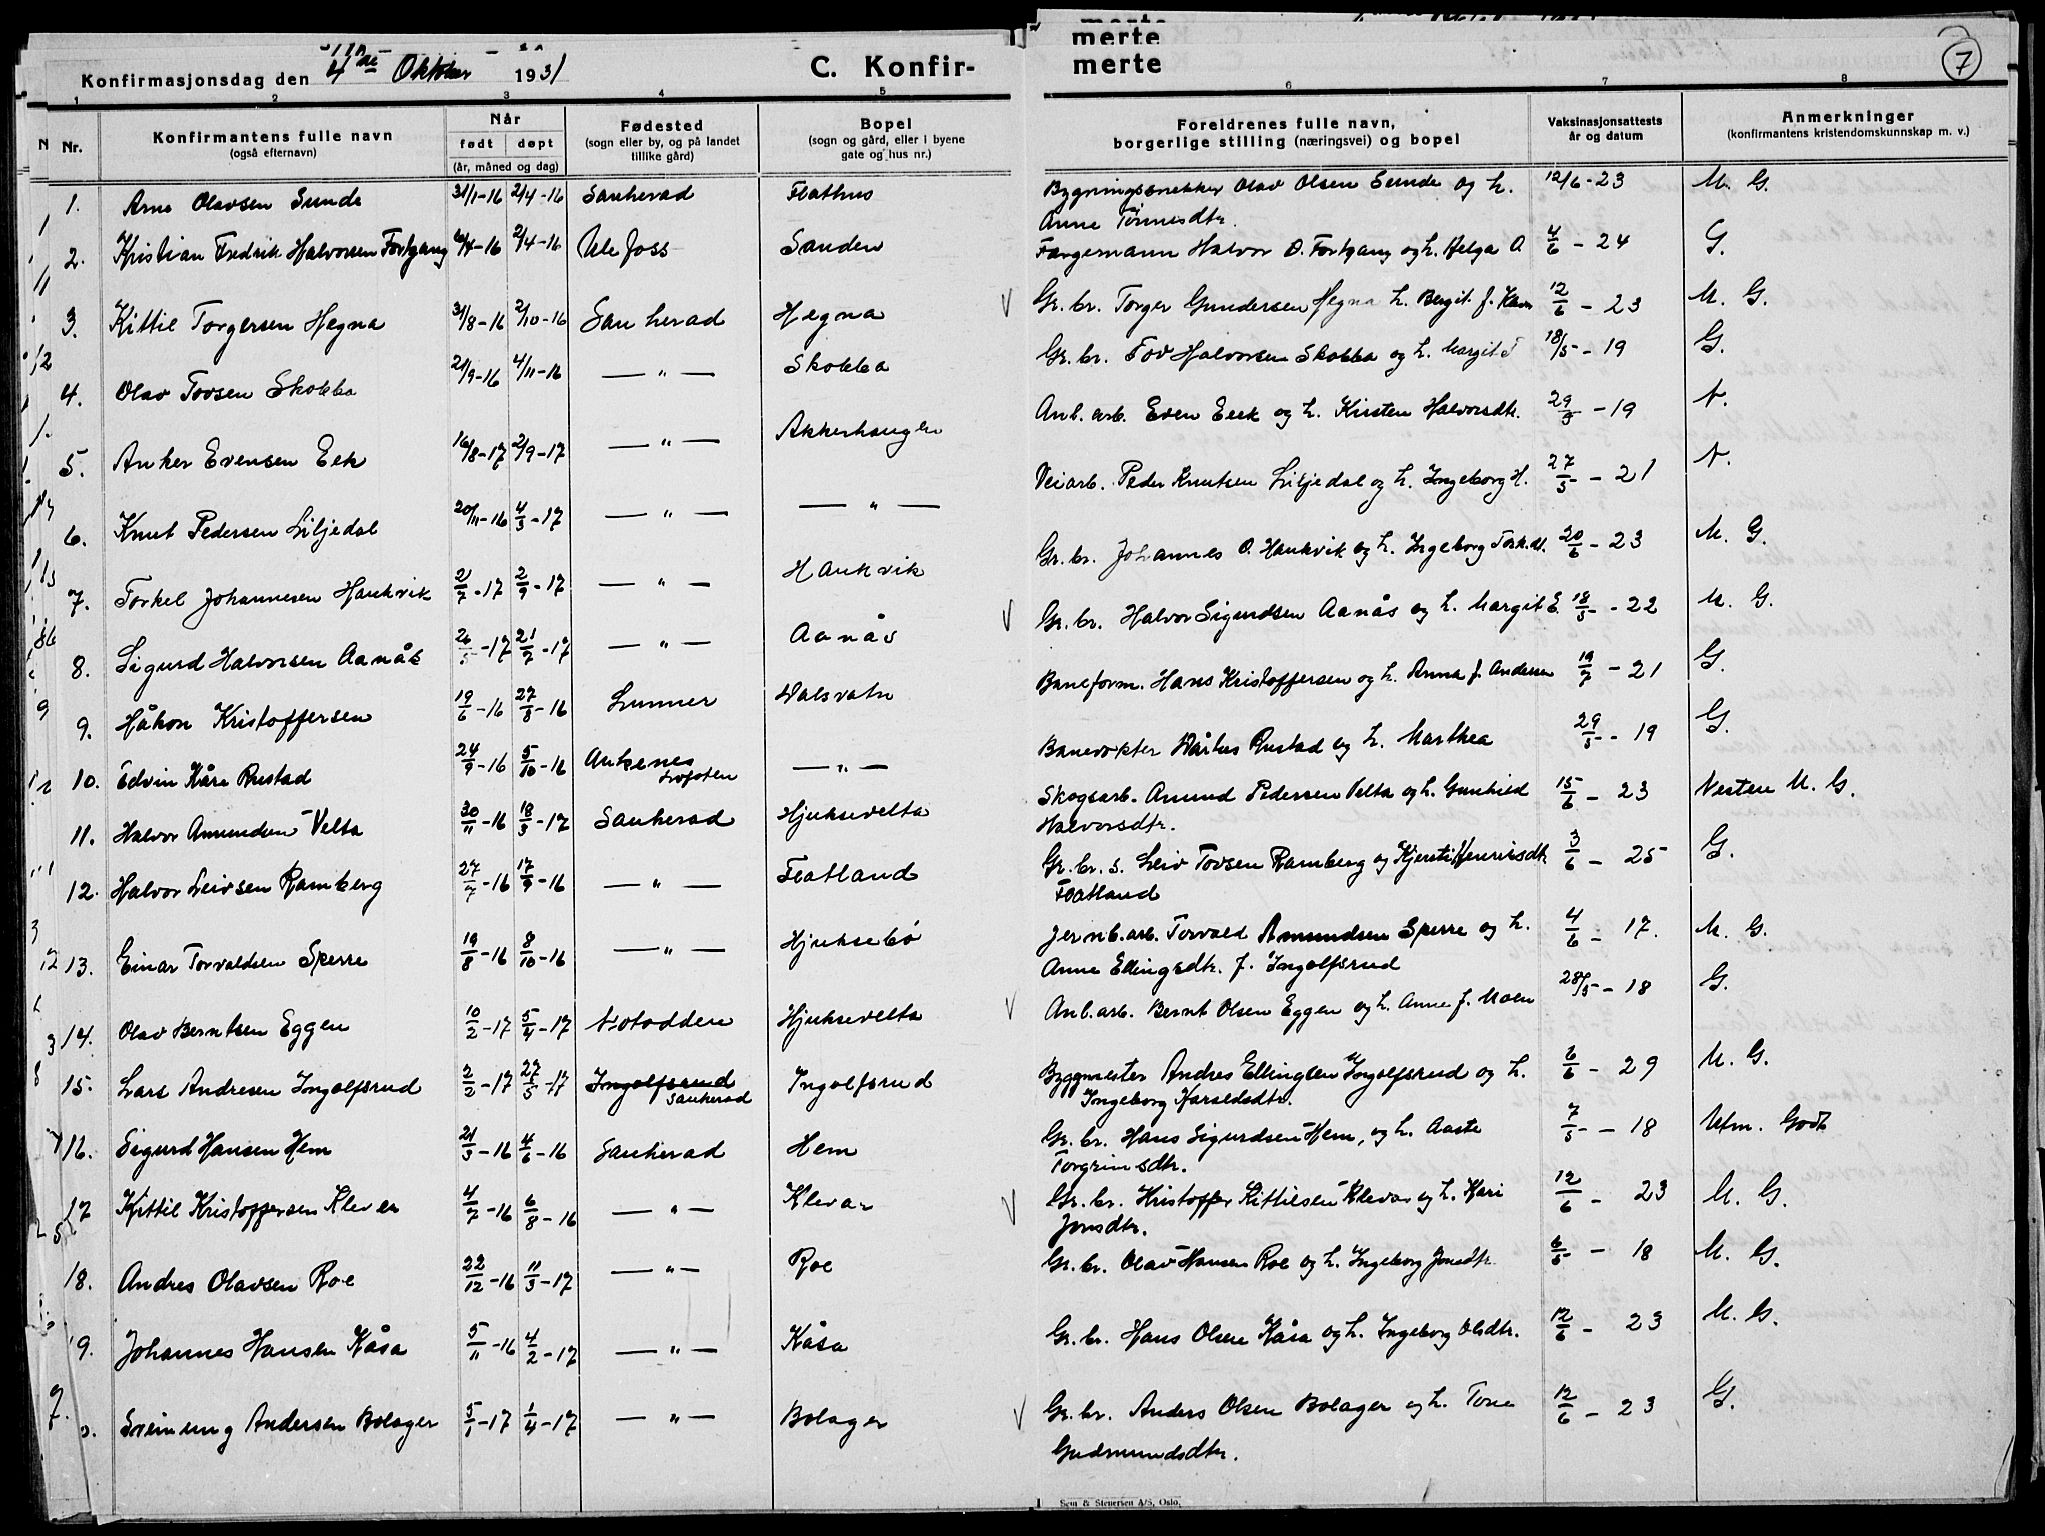 merte
Konfirmasjonsdag den 4de Oktober 1931 C. Konfir- merte 7
1 2 3 4 5 6 7 8
Nr. Konfirmantens fulle navn (også efternavn) Når født døpt (år, måned og dag) Fødested (sogn eller by, og på landet tillike gård) Bopel (sogn og gård, eller i byene gate og hus nr.) Foreldrenes fulle navn, borgerlige stilling (næringsvei) og bopel Vaksinasjonsattests år og datum Anmerkninger (konfirmantens kristendomskunnskap m. v.)
1. Arne Olavsen Sunde 31/1-16 2/4-16 Sauherad Flathus Bygningssnekker Olav Olsen Sunde og h. 12/6-23 M. G.
Anne Tønnesdtr.
2. Kristian Fredrik Halvorsen Fortgang 2/4-16 Ulefoss Sanden Fargemann Halvor O. Fortgang og h. Helga A 4/6 - 24 G.
3. Kittil Torgersen Hegna 31/8-16 2/10-16 Sauherad Hegna Gr. br. Torger Gundersen Hegna h. Bergit f. 12/6 - 23 M. G.
4. Olav Tovsen Skobba 21/9-16 4/11-16 — " — Skobba Gr. br. Tov Halvorsen Skobba og h. Margit T 18/5 - 19 G.
5. Anker Evensen Eek 16/8-17 2/9-17 — " — Akkerhaugen Anl. arb. Even Eek og h. Kirsten Halvorsdtr. - 19 N.
6. Knut Pedersen Liljedal 20/11-16 4/3-17 — " — — " — Veiarb. Peder Knutsen Liljedal og h. Ingeborg H. 27/5 - 21 N.
7. Torkel Johannesen Haukvik 21/7-17 2/9-17 — " — Haukvik Gr. br. Johannes O. Haukvik og h. Ingeborg Tork.dt. 20/6 - 23 M. G.
8. Sigurd Halvorsen Aanås 26/5-17 21/7-17 — " — Aanås Gr. br. Halvor Sigurdsen Aanås og h. Margit E. 18/5 - 22 M. G.
9. Håkon Kristoffersen 19/6-16 27/8-16 Lunner Nalsvatn Baneform. Hans Kristoffersen og h. Anna f. Andersen 19/7 - 21 G.
10. Edvin Kåre Rustad 24/9-16 5/10-16 Ankenes — " — Banevokter Rustad og h. Marthea 29/5 - 19 G.
Lofoten
11. Halvor Amundsen Velta 30/11-16 18/3-17 Sauherad Hjuksevelta Skogsarb. Amund Pedersen Velta og h. Gunhild 15/6 - 23 Nesten M. G.
Halvorsdtr.
12. Halvor Leivsen Ramberg 27/7-16 17/9-16 — " — Flatland Gr. br. s. Leiv Tovsen Ramberg og Kjersti Henriksdtr. 3/6 - 25 G.
Flatland
13. Einar Torvaldsen Sperre 19/8-16 8/10-16 — " — Hjuksebø Jernb. arb. Torvald Amundsen Sperre og h. 4/6 - 17. M. G.
Anne Ellingsdtr. f. Ingolfsrud
14. Olav Berntsen Eggen 10/2-17 5/4-17 Notodden Hjuksevelta Anl. arb. Bernt Olsen Eggen og h. Anne f. Moen 28/5 - 18 G.
15. Lars Andresen Ingolfsrud 2/2-17 27/5-17 Ingolfsrud Ingolfsrud Byggmester Andres Ellingsen Ingolfsrud og h. 6/6 - 29 M. G.
Sauherad Ingeborg Haraldsdtr.
16. Sigurd Hansen Hem 21/3-16 4/6-16 Sauherad Hem Gr. br. Hans Sigurdsen Hem, og h. Aaste 7/5 - 18 Utm. Godt
Torgrimsdtr.
17 Kittil Kristoffersen Klever 4/7-16 6/8-16 — " — Klevar Gr. br. Kristoffer Kittilsen Klevar og h. Kari 12/6 - 23 M. G.
Jonsdtr.
18. Andres Olavsen Roe 22/12-16 11/3-17 — " — Roe Gr. br. Olav Hansen Roe og h. Ingeborg Jonsdtr. 6/5 - 18 M. G.
19. Johannes Hansen Kåsa 5/11-16 4/2-17 — " — Kåsa Gr. br. Hans Olsen Kåsa og h. Ingeborg Olsdtr. 12/6 - 23 M. G.
Sveinung Andersen Bolager 5/1-17 1/4-17 — " — Bolager Gr. br. Anders Olsen Bolager og h. Tone 12/6 - 23 G.
Gudmundsdtr.
Sem & Stenersen A/S, Oslo.